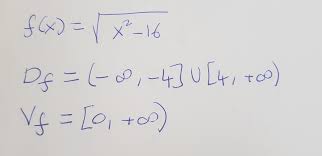 f(x) = √(x² - 16)
Df = (-∞, -4] ∪ [4, +∞)
Vf = [0, +∞)